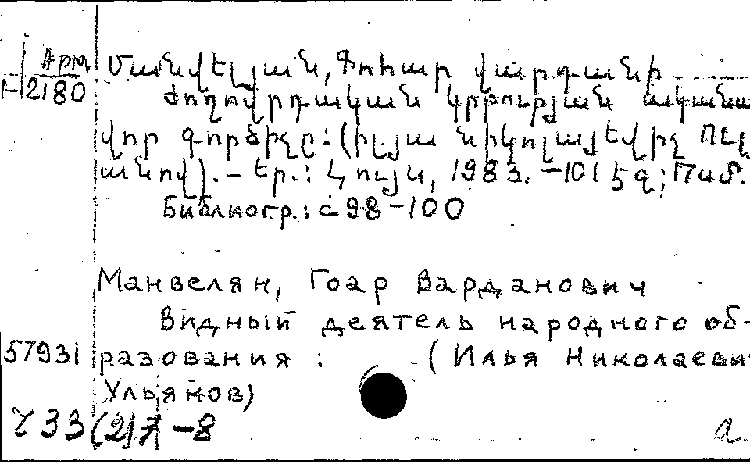 Арм
1-2180
Մանվելյան, Գոհար Վարդանի
Ժողովրդական կրթության ականա
վոր գործիչը: (Իլյա Նիկոլայեվիչ Ուլ
անով).– Եր.: Լույս, 1983. –101 էջ;
Библиогр.: с 98-100
Манвелян, Гоар Варданович
Видный деятель народного об-
57931 разования : (Илья Николаеви
Ульянов)
Ч33(2)7-8
а